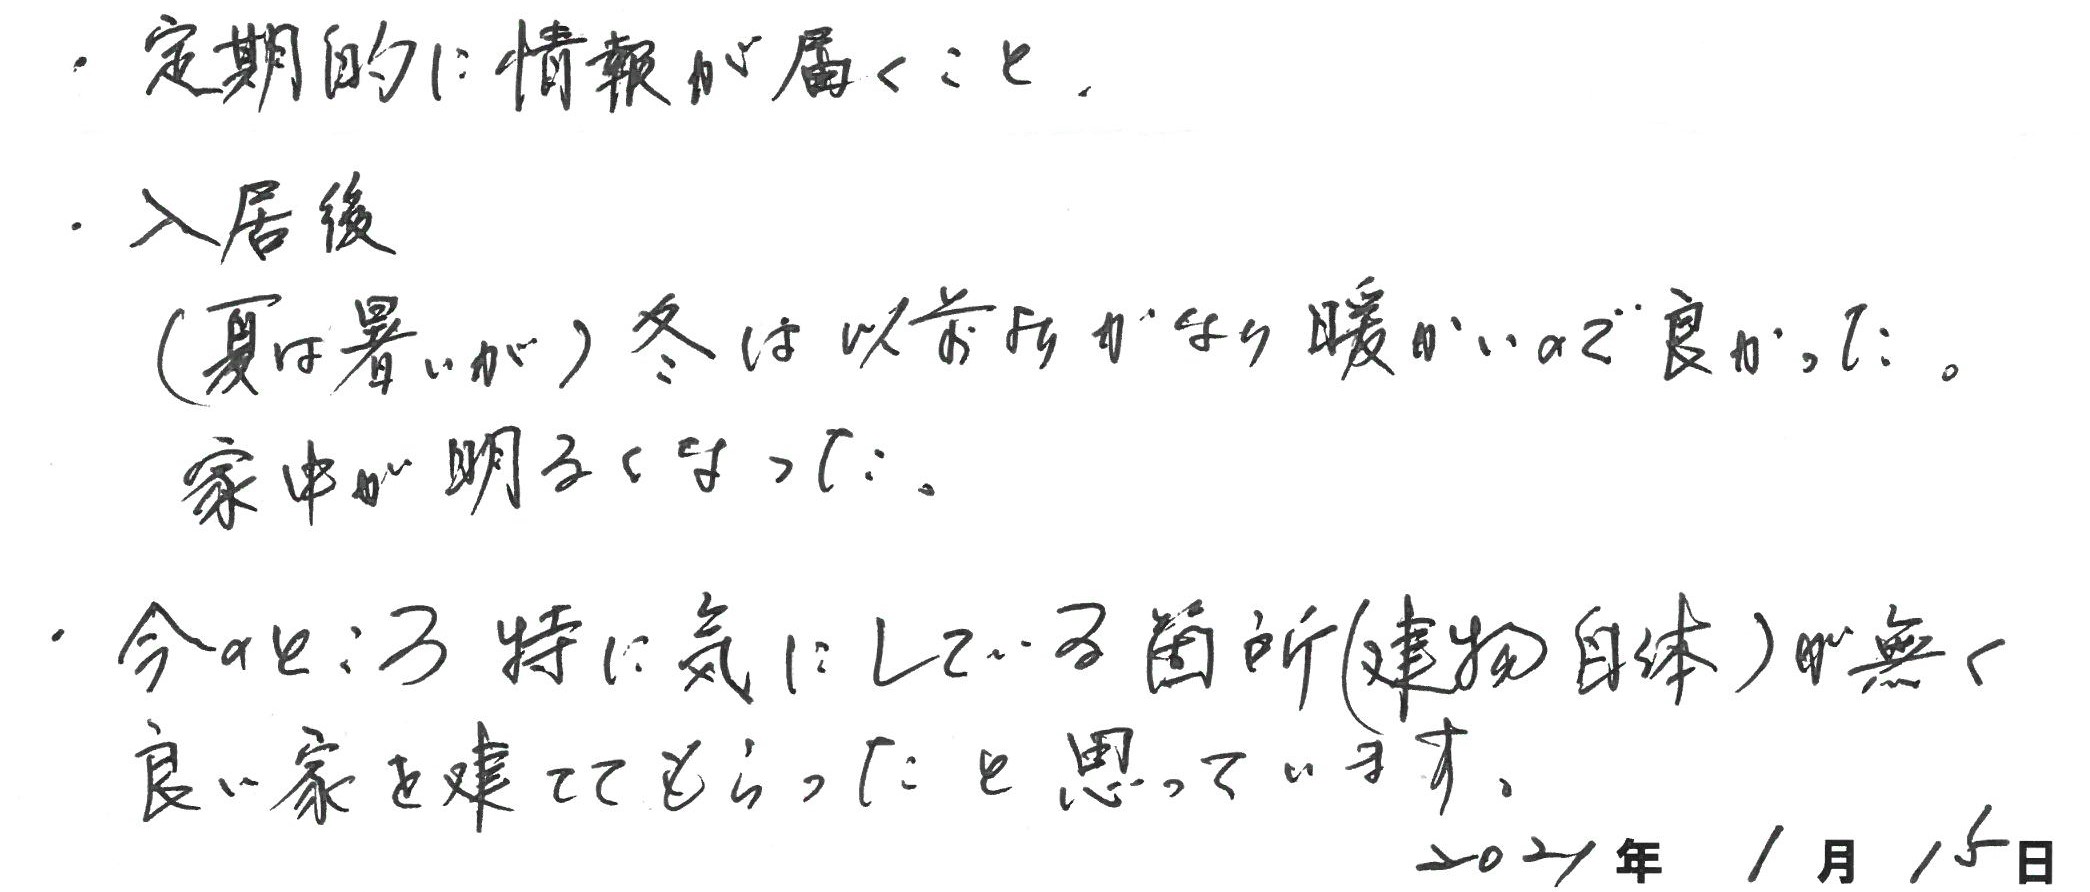 ・定期的に情報が届くこと.
・入居後
(夏は暑いが)冬は以前よりかなり暖かいので良かった。
家中が明るくなった。
・今のところ特に気にしている箇所(建物自体)が無く
良い家を建ててもらったと思っています。
2021年 1月 15日